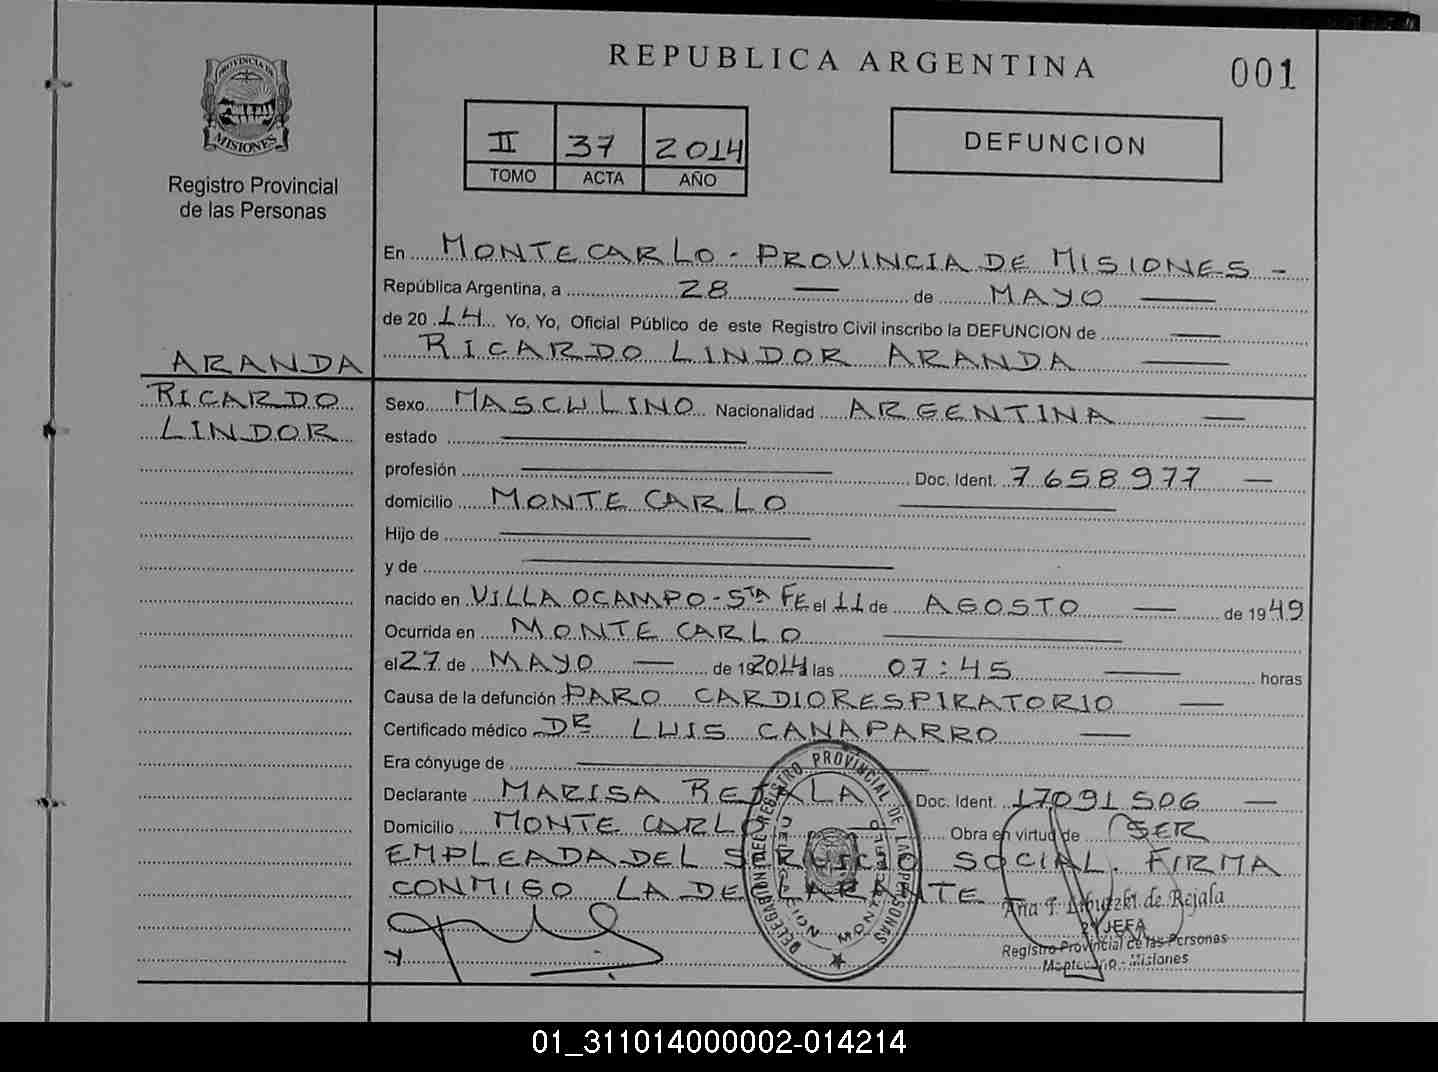 REPUBLICA ARGENTINA
001
PROVINCIA DE
MISIONES
Registro Provincial
de las Personas
II 37 2014
TOMO ACTA AÑO
DEFUNCION
En MONTECARLO - PROVINCIA DE MISIONES -
República Argentina, a 28 — de MAYO —
de 20 14 Yo, Yo, Oficial Público de este Registro Civil inscribo la DEFUNCION de —
RICARDO LINDOR ARANDA —
ARANDA
RICARDO
LINDOR
Sexo MASCULINO Nacionalidad ARGENTINA —
estado —
profesión — Doc. Ident. 7658977 —
domicilio MONTECARLO —
Hijo de —
y de —
nacido en VILLA OCAMPO - STA FE el 11 de AGOSTO — de 1949
Ocurrida en MONTECARLO —
el 27 de MAYO — de 192014 las 07:45 — horas
Causa de la defunción PARO CARDIORESPIRATORIO —
Certificado médico DR LUIS CANAPARRO —
Era cónyuge de —
Declarante MARISA REJALA Doc. Ident. 17091506 —
Domicilio MONTECARLO — Obra en virtud de SER
EMPLEADA DEL SERVICIO SOCIAL. FIRMA
CONMIGO LA DECLARANTE
DELEGACION DEL REGISTRO PROVINCIAL DE LAS PERSONAS
DELEGACION
Ana T. de Rejala
JEFA
Registro Provincial de las Personas
Montecarlo - Misiones
01_311014000002-014214